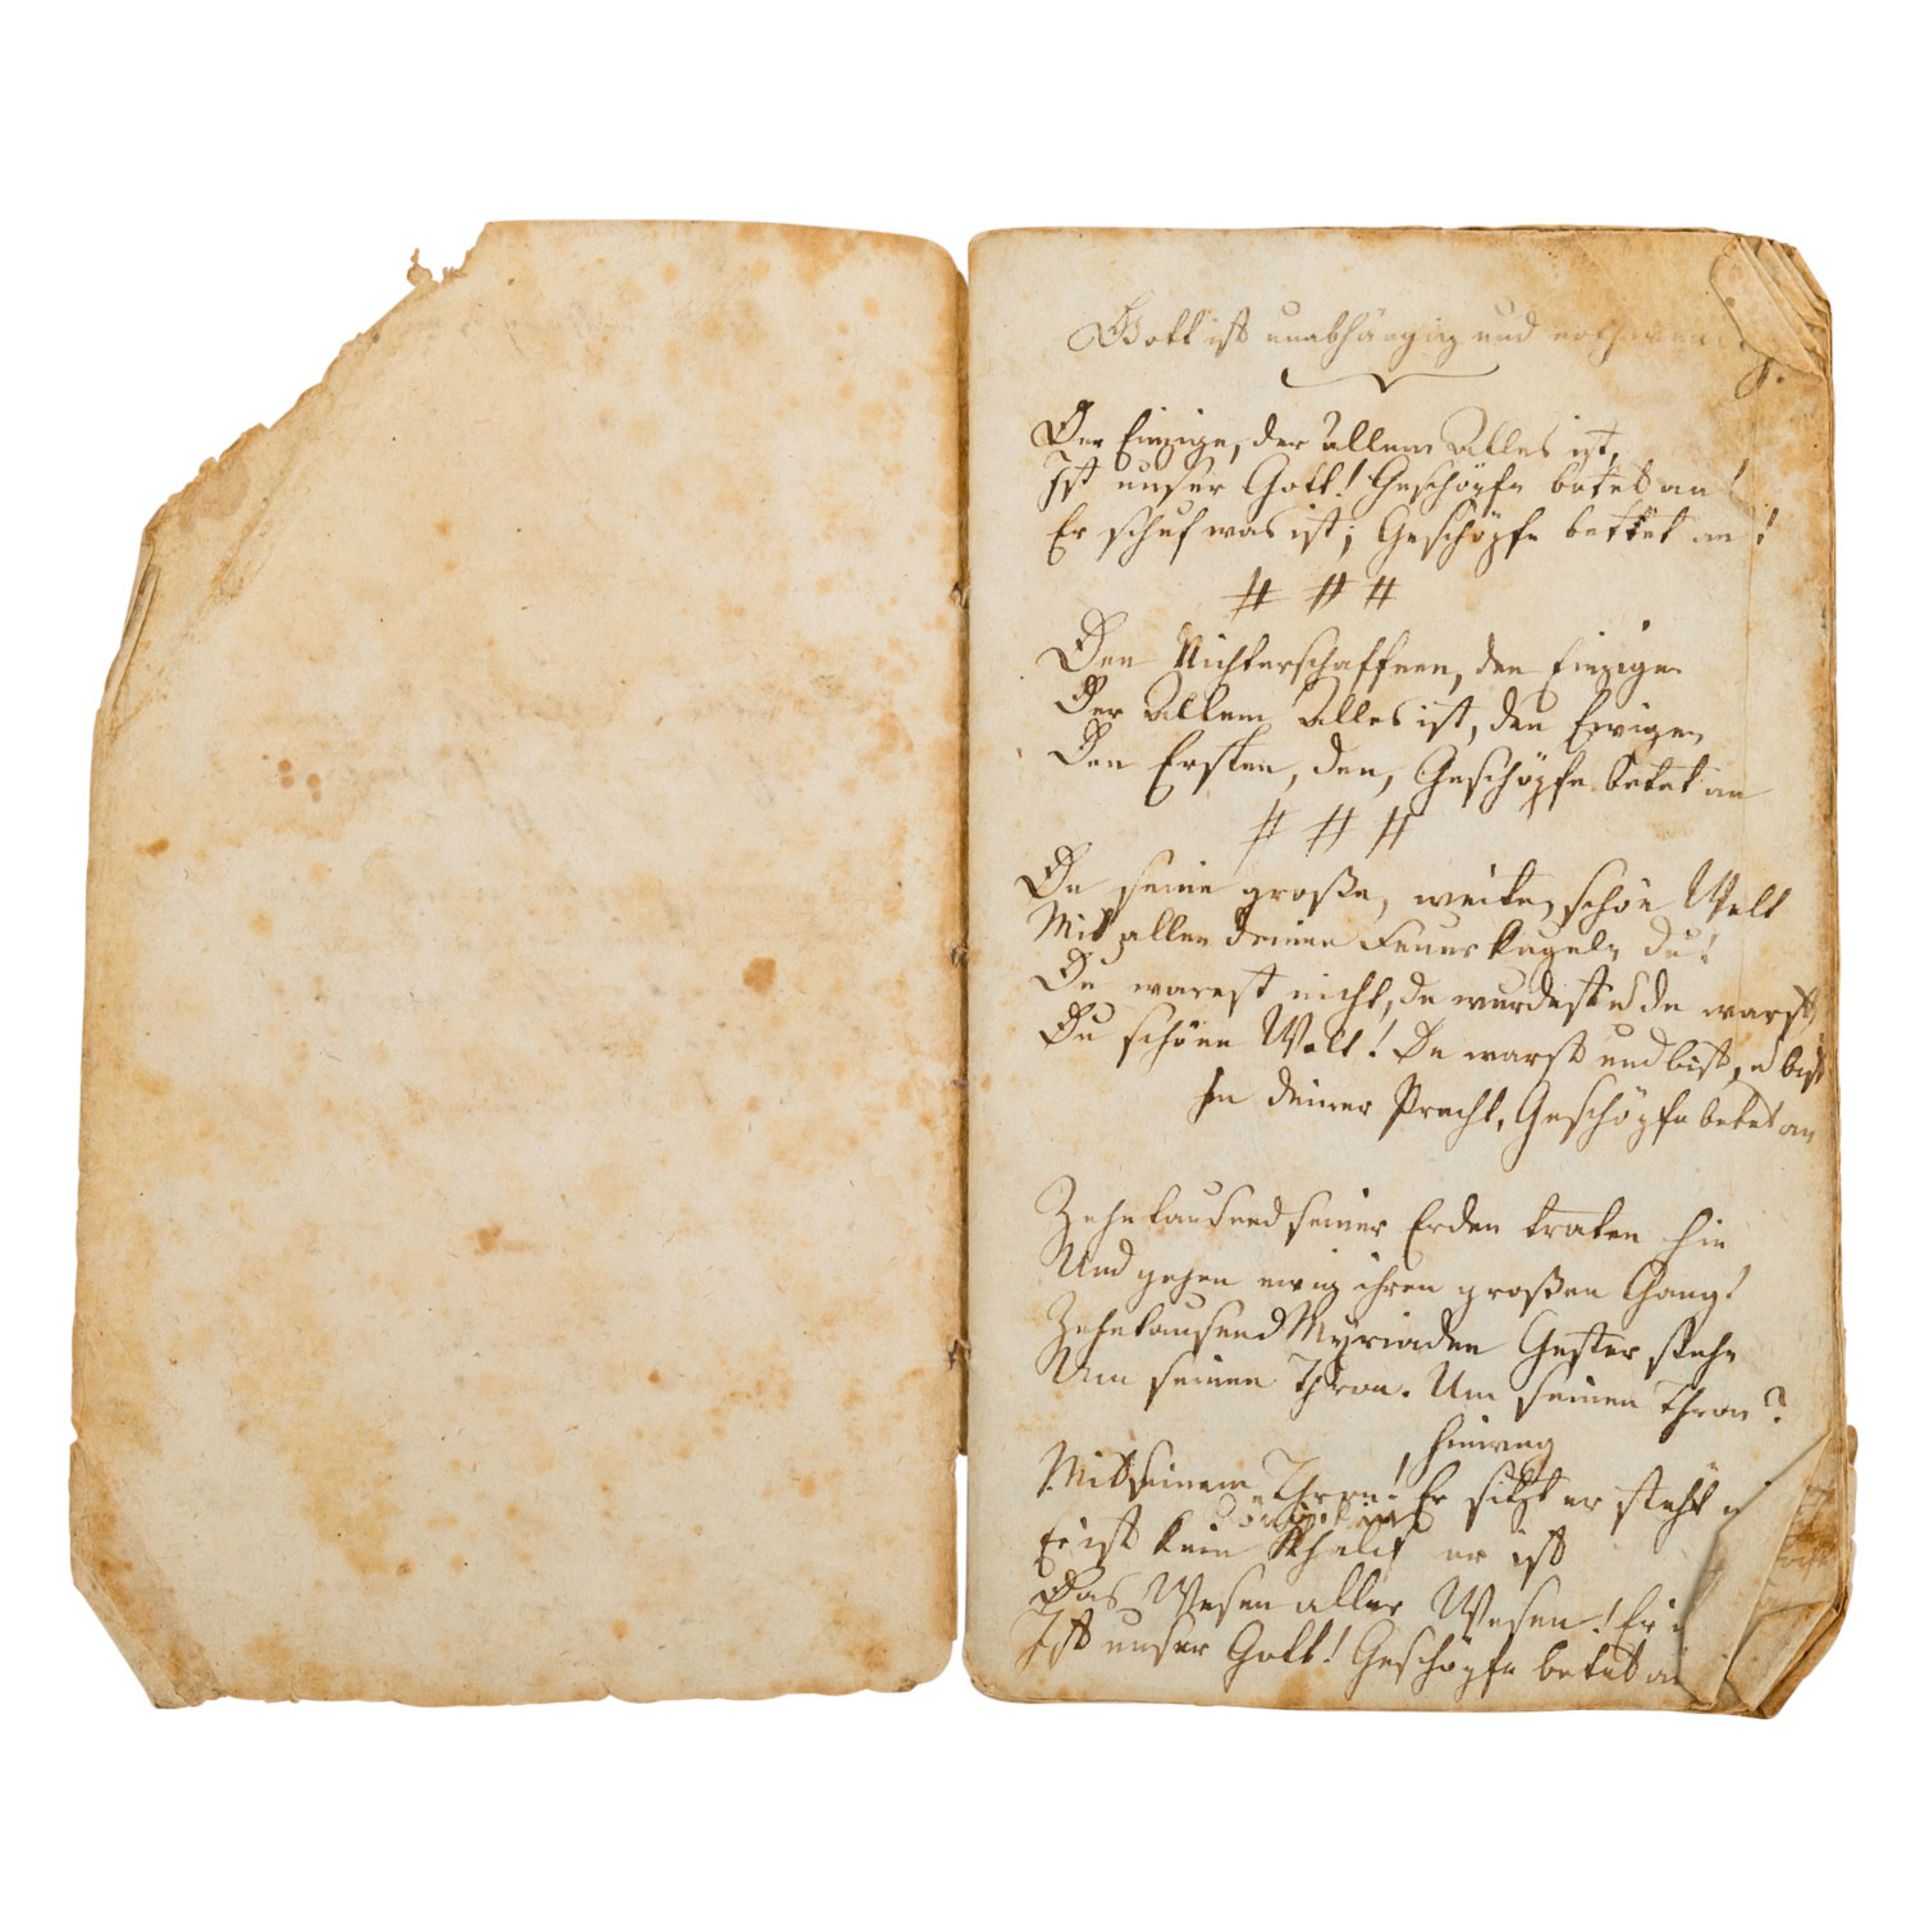 Gott ist unabhängig und nothwen
Der Einzige, der Allem Alles ist,
Ist unser Gott! Geschöpfe betet an!
Er schuf was ist; Geschöpfe bettet an!
# # #
Den Nichterschaffnen, den Einzigen
Der Allem Alles ist, den Ewigen
Den Ersten, den, Geschöpfe betet an
# # #
Du seine große, weite, schöne Welt
Mit allen deinen Feuerkugeln du!
Du warest nicht, du wurdest u du warst,
Du schöne Welt! Du warst und bist, u bist
In deiner Pracht, Geschöpfe betet an
Zehntausend seiner Erden traten hin
Und gehen ewig ihren großen Gang!
Zehntausend Myriaden Geister stehn
Um seinen Thron. Um seinen Thron?
hinweg
Mit seinem Thron! Er sitzt er steht
Er ist kein Khalif er ist
Das Wesen aller Wesen! Er i
Ist unser Gott! Geschöpfe betet an